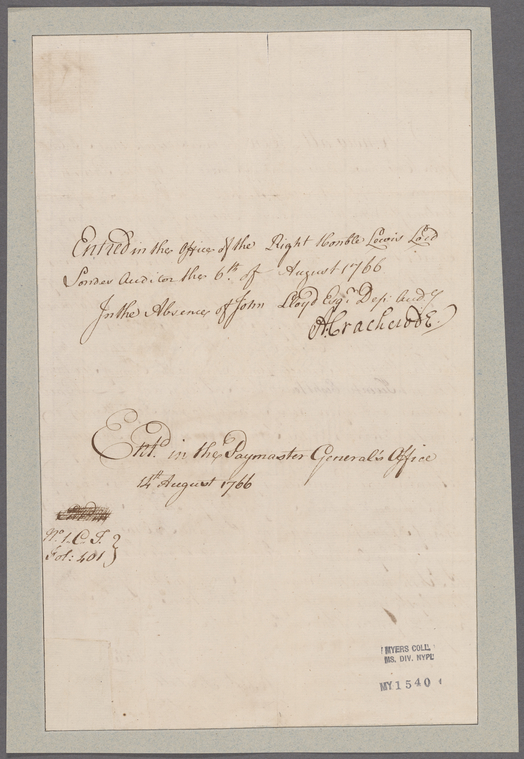 Entred in the Office of the Right Honble Lewis Lord
Sondes Auditor the 6th of August 1766
In the Absence of John Lloyd Esqr. Dep: Audr.
A Cracherode
Entd in the Paymaster General's Office
14th August 1766
No. 1. C. F.
Fol: 401
MYERS COLL.
MS. DIV. NYPL
MY 1540